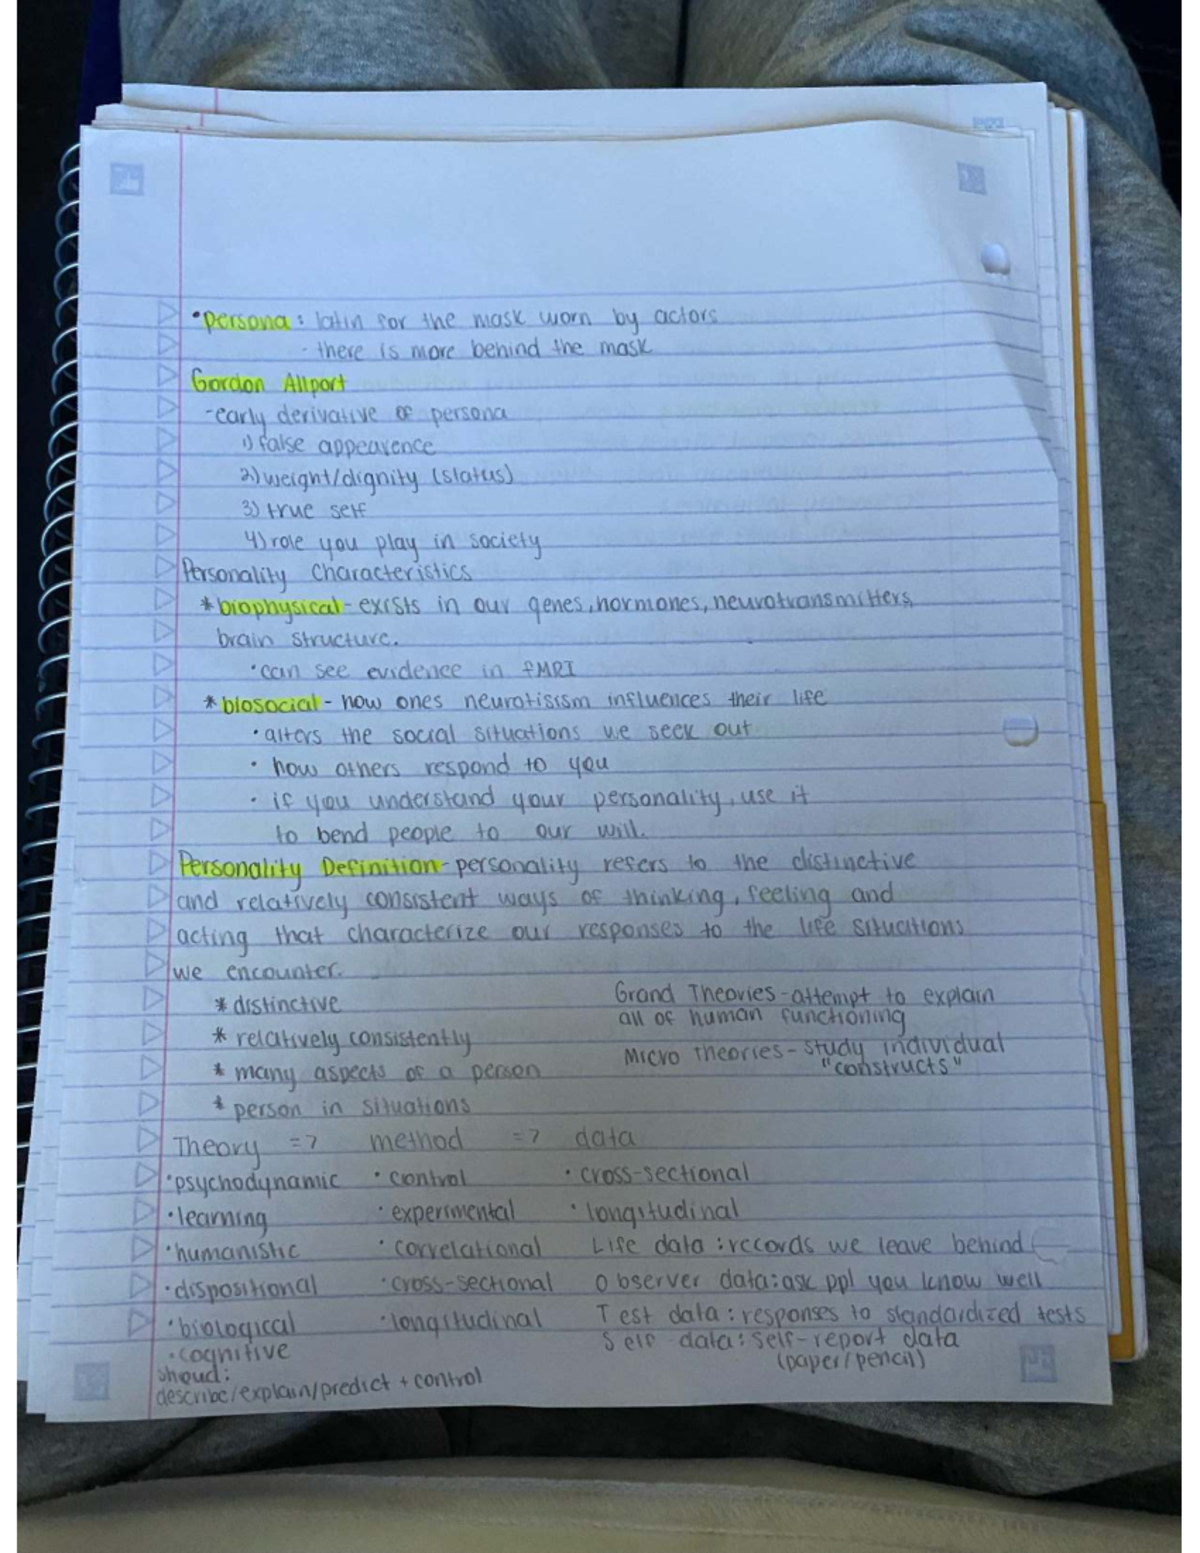 • persona: latin for the mask worn by actors
- there is more behind the mask
Gordon Allport
- early derivative of persona
1) false appearence
2) weight/dignity (status)
3) true self
4) role you play in society
Personality Characteristics
* biophysical - exists in our genes, hormones, neurotransmitters,
brain structure.
• can see evidence in fMRI
* biosocial - how ones neurotisism influences their life
• alters the social situations we seek out
• how others respond to you
• if you understand your personality, use it
to bend people to our will.
Personality Definition - personality refers to the distinctive
and relatively consistent ways of thinking, feeling and
acting that characterize our responses to the life situations
we encounter.
* distinctive
* relatively consistently
* many aspects of a person
* person in situations
Grand Theories - attempt to explain
all of human functioning
Micro theories - study individual
"constructs"
Theory => method => data
• psychodynamic • control • cross-sectional
• learning • experimental • longitudinal
• humanistic • correlational Life data: records we leave behind
• dispositional • cross-sectional Observer data: ask ppl you know well
• biological • longitudinal Test data: responses to standardized tests
• cognitive Self data: self-report data
(paper/pencil)
shoud:
describe/explain/predict + control